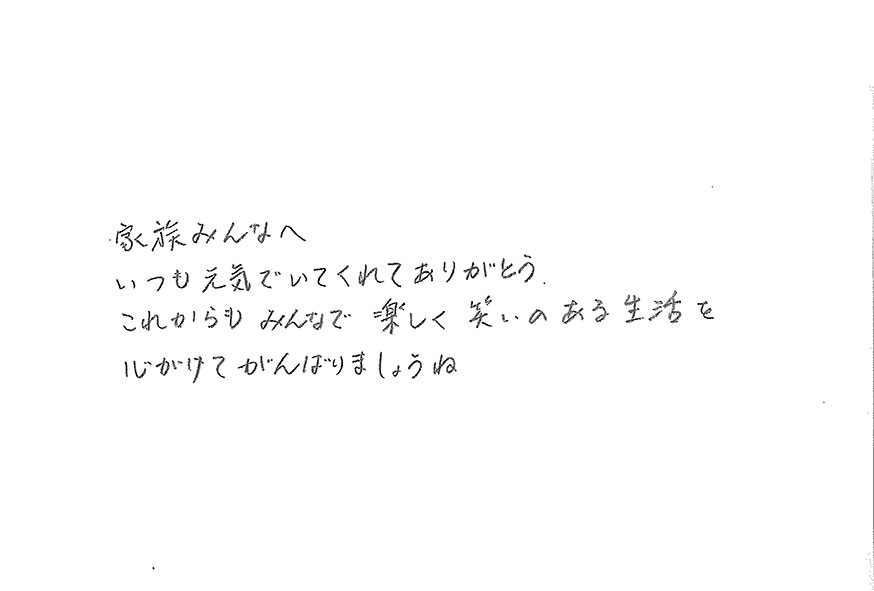 家族みんなへ
いつも元気でいてくれてありがとう.
これからも みんなで 楽しく 笑いのある生活を
心がけて がんばりましょうね